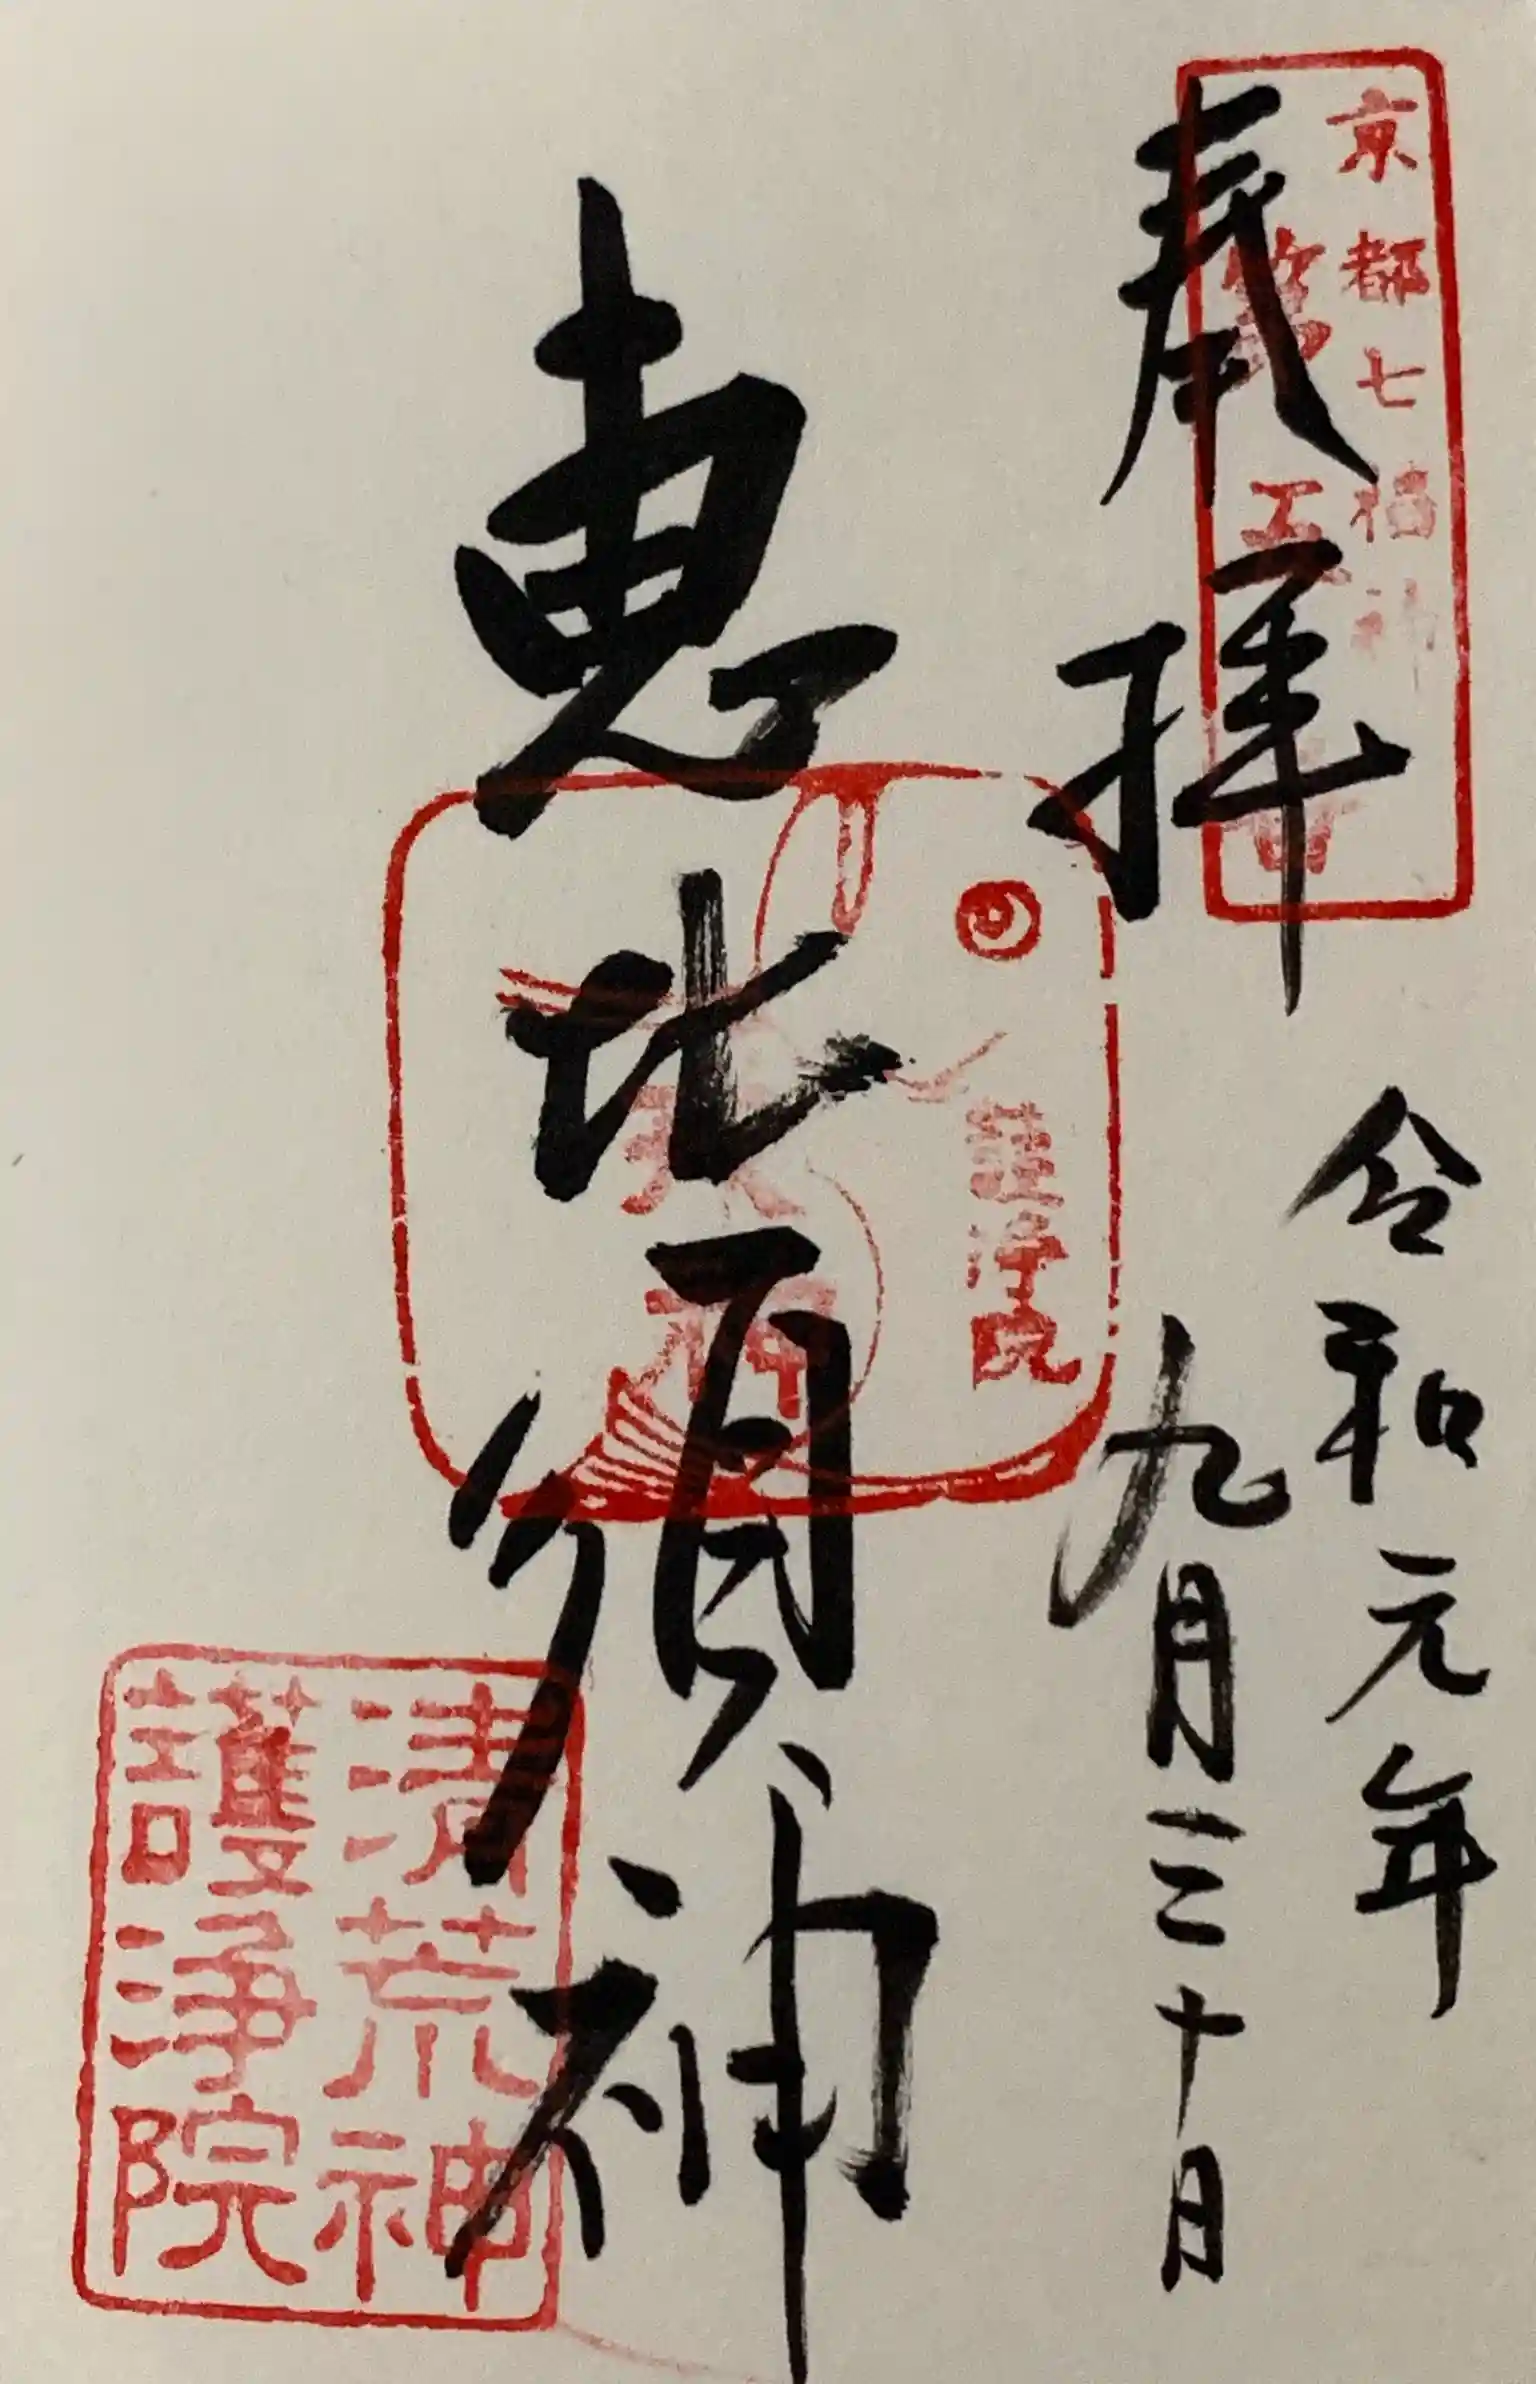 京都七福神
第五番
奉拝
令和元年
九月三十日
恵比須神
護淨院
清荒神
護浄院